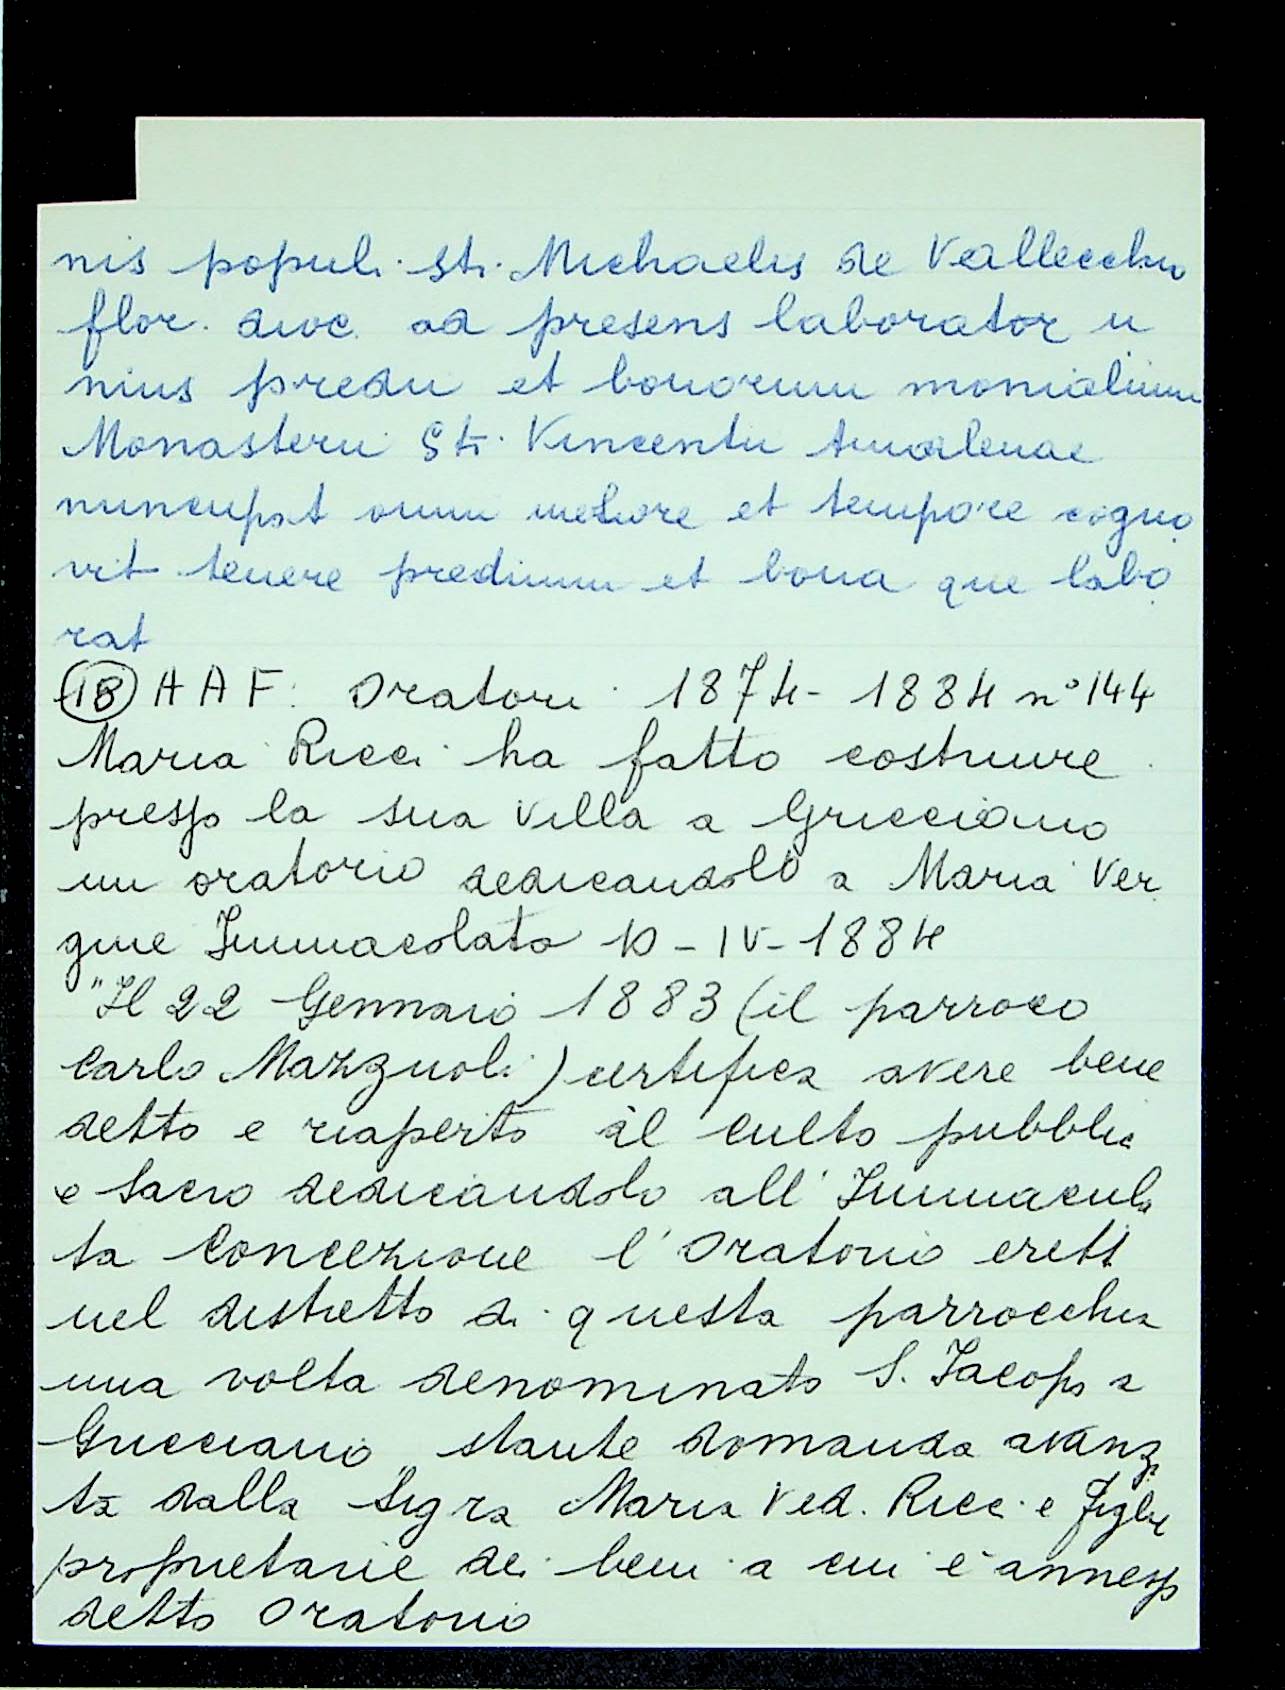 nis populi St. Michaelis de Vallecchio
flor. dioc ad presens laborator u
nius predii et bonorum monialium
Monasterii Sti. Vincentii Annalenae
nuncupat omni meliore et tempore cogno
vit tenere predium et bona que labo
rat
(18) A A F: Oratori 1874 - 1884 n° 144
Maria Ricci ha fatto costruire
presso la sua villa a Gricciano
un oratorio dedicandolo a Maria Ver
gine Immacolata 10 - IV - 1884
"Il 22 Gennaio 1883 (il parroco
Carlo Mazzuoli) certifica avere bene
detto e riaperto al culto pubblic
o sacro dedicandolo all'Immacula
ta Concezione l'Oratorio erett
nel distretto di questa parrocchia
una volta denominato S. Jacopo a
Gricciano" stante domanda avanza
ta dalla Sigra Maria Ved. Ricci e figlie
proprietarie dei beni a cui è annesso
detto Oratorio